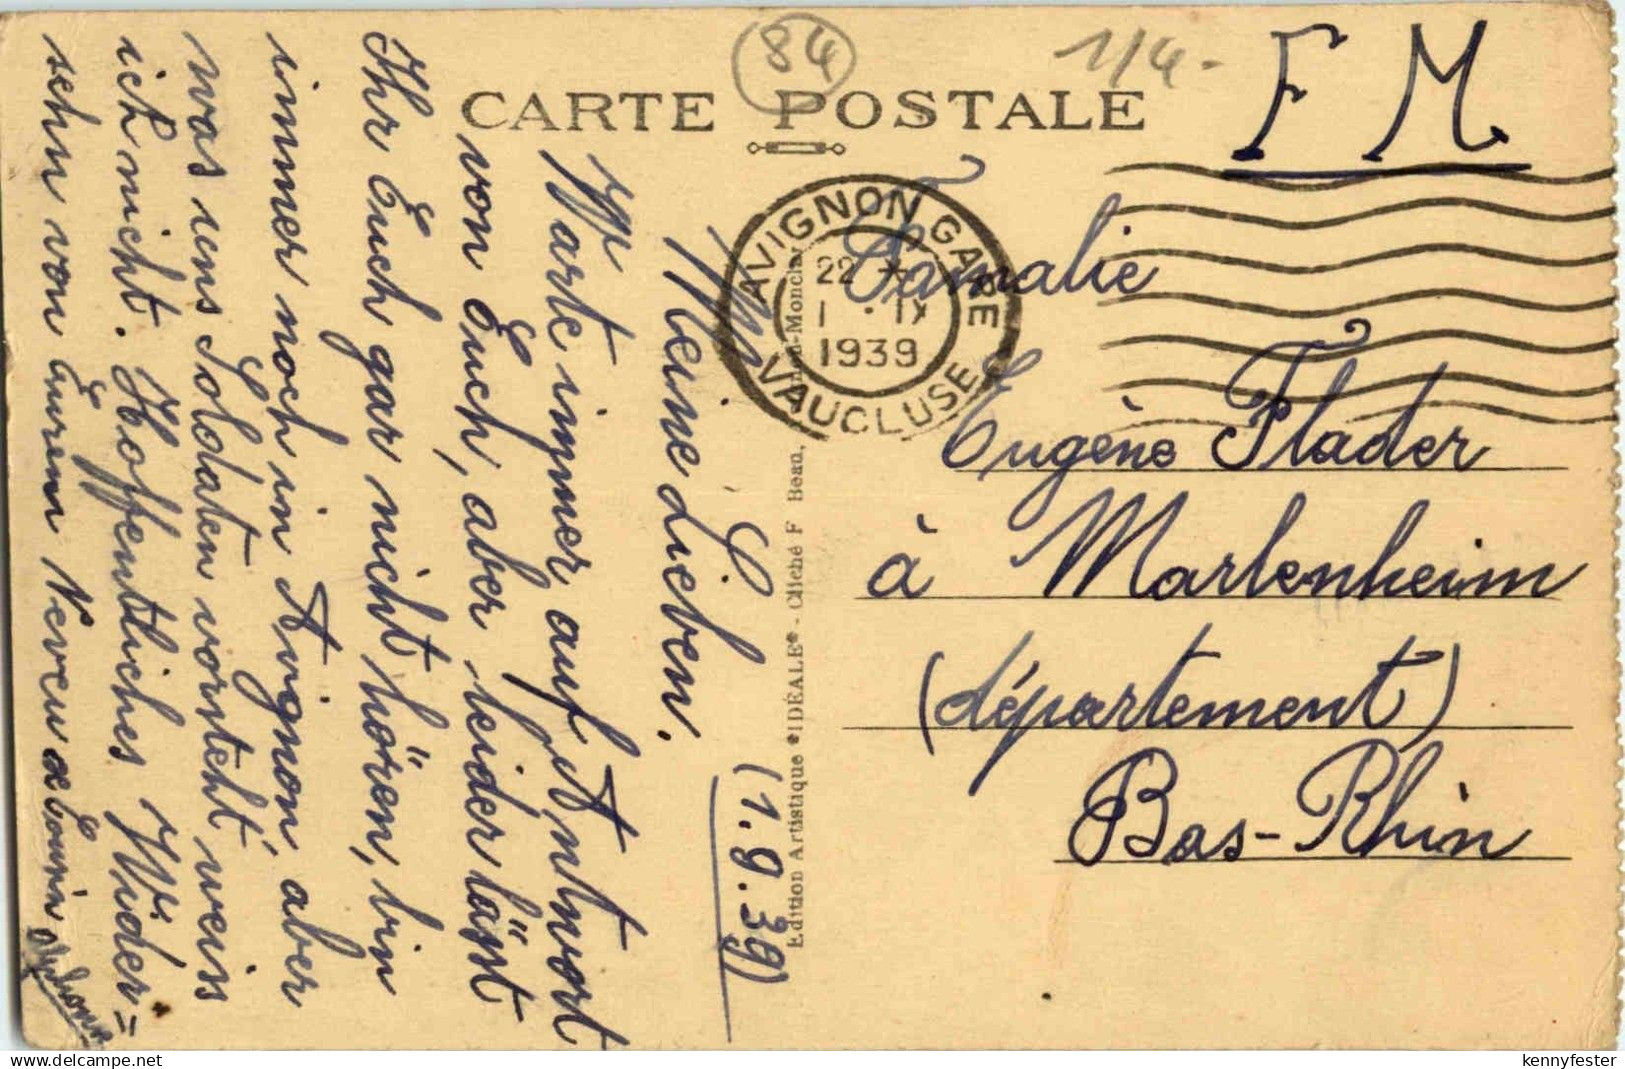 84
1/4-
F M
CARTE POSTALE
AVIGNON GARE
22 *
1 · IX
1939
VAUCLUSE
Meine Lieben.
(1.9.39)
Warte immer auf Antwort
von Euch, aber leider lässt
Ihr Euch gar nicht hören, bin
immer noch in Avignon, aber
was uns Soldaten vorsteht weis
ich nicht. Hoffentliches Wider=
sehn von Eurem Neveu &
Edition Artistique "IDÉALE" - Cliché F Beau,
Famalie
Eugène Flader
à Marlenheim
(département)
Bas-Rhin
kennyfester
delcampe.net